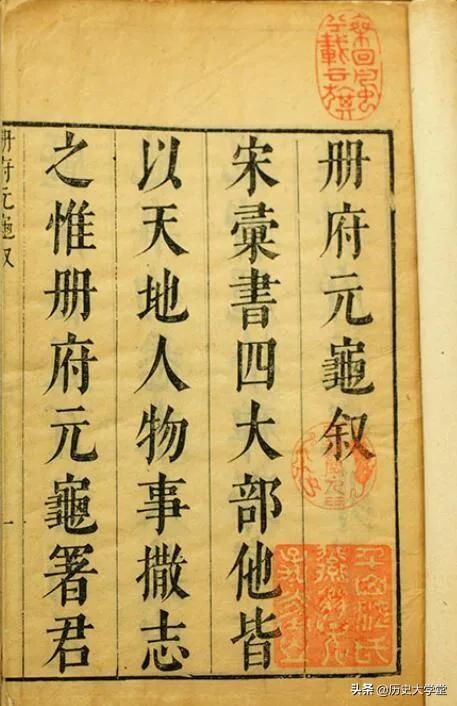 册府元龜叙
宋彚書四大部他皆
以天地人物事撒志
之惟册府元龜署君
册府元龜叙
一
头条 @历史大学堂